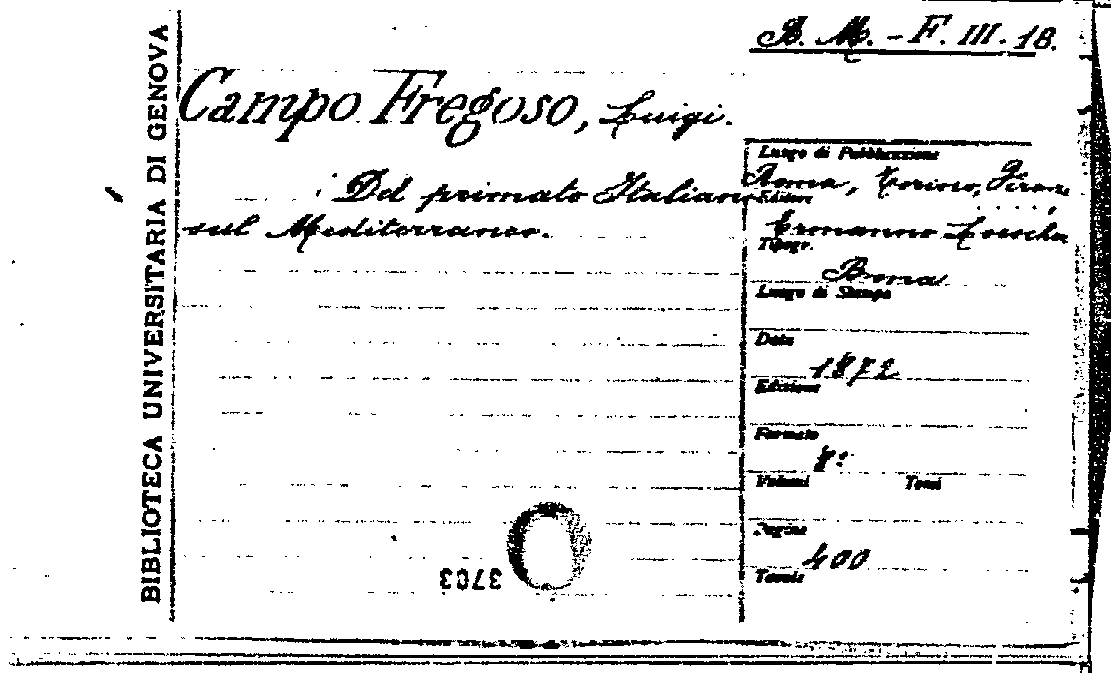 B. M. - F. III. 18.
BIBLIOTECA UNIVERSITARIA DI GENOVA
Campo Fregoso, Luigi.
Del primato Italiano
sul Mediterraneo.
Luogo di Pubblicazione
Roma, Torino, Firenze
Editore
Ermanno Loescher
Tipogr.
Roma
Luogo di Stampa
Data
1872
Edizione
Formato
8°
Volumi Tomi
Pagine
400
Tavole
3703